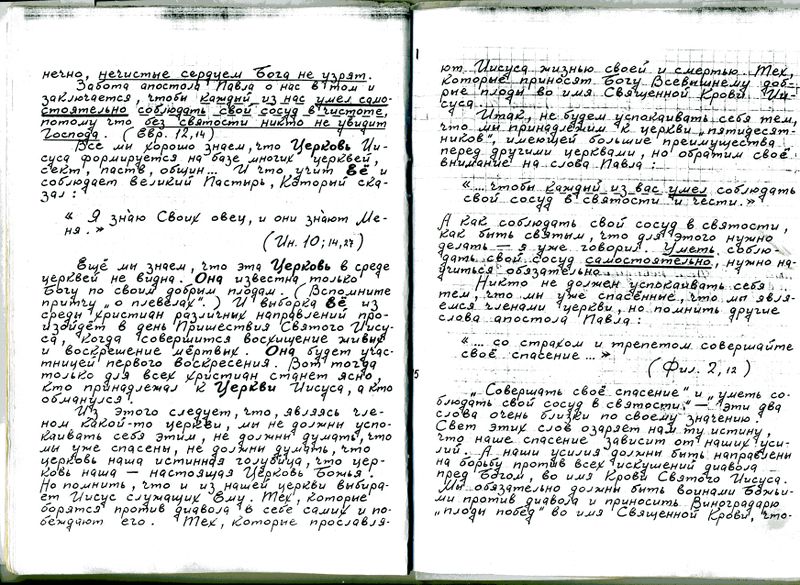 нечно, нечистые сердцем Бога не узрят.
Забота апостола Павла о нас в том и
заключается, чтобы каждый из нас умел само-
стоятельно соблюдать свой сосуд в чистоте,
потому что без святости никто не увидит
Господа. (Евр. 12,14)
Все мы хорошо знаем, что Церковь Ии-
суса формируется на базе многих церквей,
сект, паств, общин... И что учит Её и
соблюдает великий Пастырь, Который ска-
зал:
„ Я знаю Своих овец, и они знают Ме-
ня.”
(Ин. 10; 14,27)
Ещё мы знаем, что эта Церковь в среде
церквей не видна. Она известна только
Богу по своим добрым плодам. (Вспомните
притчу „о плевелах”.) И выборка Её из
среды христиан различных направлений про-
изойдёт в день Пришествия Святого Иису-
са, когда совершится восхищение живых
и воскрешение мёртвых. Она будет учас-
тницей первого воскресения. Вот тогда
только для всех христиан станет ясно,
кто принадлежал к Церкви Иисуса, а кто
обманулся.
Из этого следует, что, являясь чле-
ном какой-то церкви, мы не должны успо-
каивать себя этим, не должны думать, что
мы уже спасены, не должны думать, что
церковь наша истинная голубица, что цер-
ковь наша — настоящая Церковь Божья.
Но помнить, что и из нашей церкви выбира-
ет Иисус служащих Ему. Тех, которые
борятся против диавола в себе самих и по-
беждают его. Тех, которые прославля-
ют Иисуса жизнью своей и смертью. Тех,
которые приносят Богу Всевышнему доб-
рые плоды во имя Священной Крови Ии-
суса.
Итак, не будем успокаивать себя тем,
что мы принадлежим к церкви „пятидесят-
ников”, имеющей большие преимущества
перед другими церквами, но обратим своё
внимание на слова Павла:
„ ... чтобы каждый из вас умел соблюдать
свой сосуд в святости и чести.”
А как соблюдать свой сосуд в святости,
как быть святым, что для этого нужно
делать — я уже говорил. Уметь соблю-
дать свой сосуд самостоятельно, нужно на-
учиться обязательно.
Никто не должен успокаивать себя
тем, что мы уже спасённые, что мы явля-
емся членами церкви, но помнить другие
слова апостола Павла:
„ ... со страхом и трепетом совершайте
своё спасение...”
(Фил. 2,12)
„Совершать своё спасение” и „уметь со-
блюдать свой сосуд в святости” — эти два
слова очень близки по своему значению.
Свет этих слов озаряет нам ту истину,
что наше спасение зависит от наших уси-
лий. А наши усилия должны быть направлены
на борьбу против всех искушений диавола —
пред Богом, во имя Крови Святого Иисуса.
Мы обязательно должны быть воинами Божьи-
ми против диавола и приносить Виноградарю
„плоды побед” во имя Священной Крови, что-